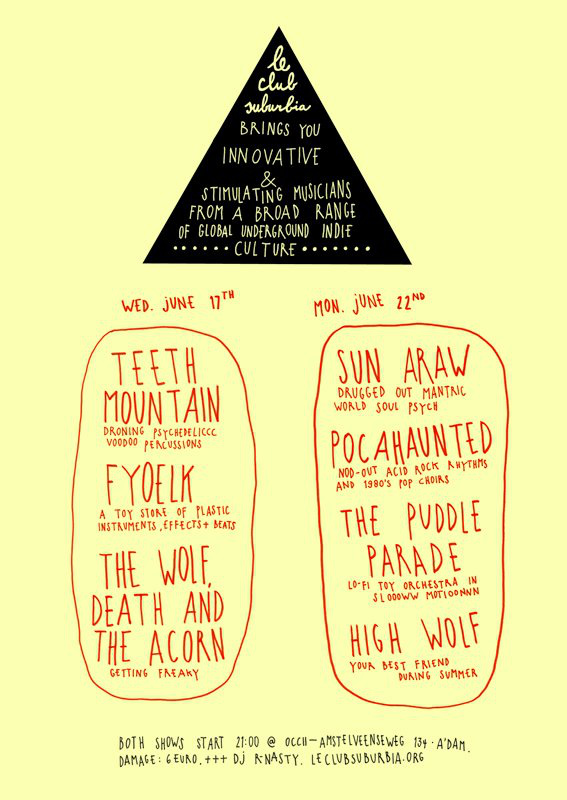 le
club
suburbia
BRINGS YOU
INNOVATIVE
&
STIMULATING MUSICIANS
FROM A BROAD RANGE
OF GLOBAL UNDERGROUND INDIE
•••••• CULTURE •••••••
WED. JUNE 17TH
TEETH
MOUNTAIN
DRONING PSYCHEDELICCC
VOODOO PERCUSSIONS
FYOELK
A TOY STORE OF PLASTIC
INSTRUMENTS, EFFECTS + BEATS
THE WOLF,
DEATH AND
THE ACORN
GETTING FREAKY
MON. JUNE 22ND
SUN ARAW
DRUGGED OUT MANTRIC
WORLD SOUL PSYCH
POCAHAUNTED
NOD-OUT ACID ROCK RHYTHMS
AND 1980'S POP CHOIRS
THE PUDDLE
PARADE
LO-FI TOY ORCHESTRA IN
SLOOOWW MOTIOONNN
HIGH WOLF
YOUR BEST FRIEND
DURING SUMMER
BOTH SHOWS START 21:00 @ OCCII — AMSTELVEENSEWEG 134 · A'DAM.
DAMAGE: 6 EURO. +++ DJ R-NASTY. LECLUBSUBURBIA.ORG